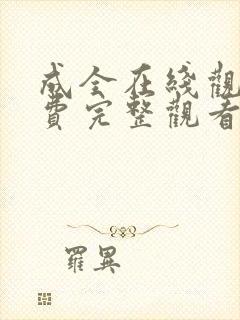 成全在綫觀
費完整觀看
羅異